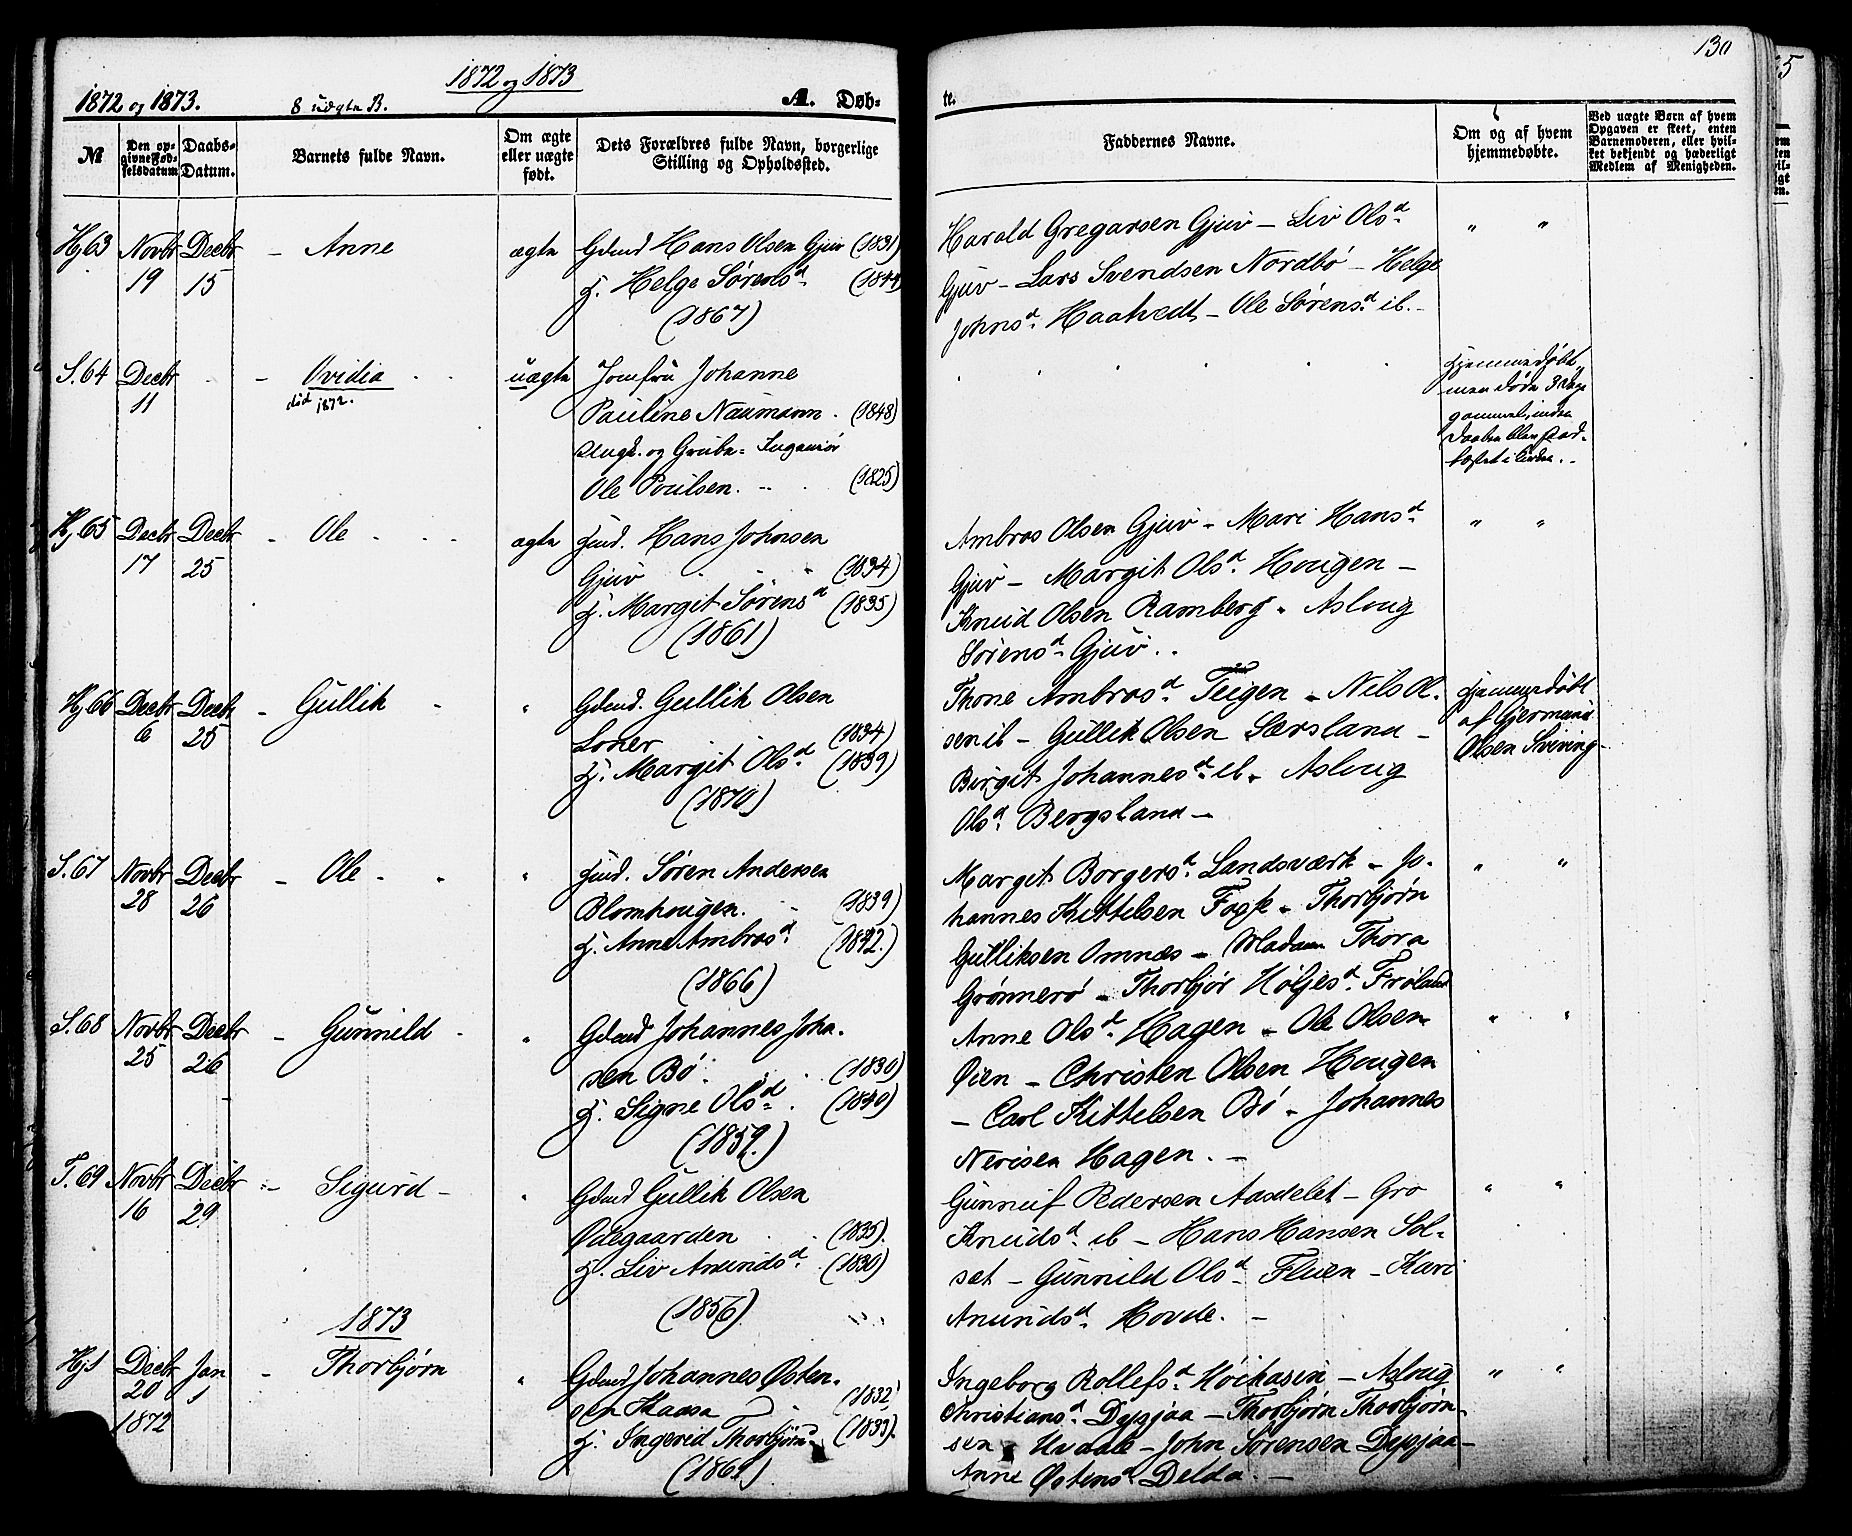 130
1872 og 1873
1872 og 1873.
8 uægte B.
A. Døb-
te.
№
Den op-
givne Fød-
selsdatum
Daabs-
Datum.
Barnets fulde Navn.
Om ægte
eller uægte
født.
Dets Forældres fulde Navn, borgerlige
Stilling og Opholdssted.
Faddernes Navne.
Om og af hvem
hjemmedøbte.
Ved uægte Børn af hvem
Opgaven er skeet, enten
Barnemoderen, eller hvil-
ket bekjendt og hæderligt
Medlem af Menigheden.
Hj 63 Novbr Decbr - Anne ægte Gdmd Hans Olsen Gjuv (1831)
19 15 H. Helge Sørensd. (1844)
(1867)
Harald Gregarsen Gjuv - Liv Olsd.
Gjuv - Lars Svendsen Nordbø - Helge
Johnsd. Haatvedt - Ole Sørensd. ib. -
" "
S. 64 Decbr - Ovidia uægte Jomfru Johanne
11 død 1872. Pauline Naumann. (1848)
Ungk. og Grube-Ingeniør
Ole Poulsen. (1825)
Hjemmedøbt,
men døde 3 Dage
gammel, inden
Daaben blev stad-
fæstet i Kirken. -
Hj 65 Decbr Decbr - Ole ægte Hmd. Hans Johnsen
17 25 Gjuv (1834)
H. Margit Sørensd. (1835)
(1861)
Ambros Olsen Gjuv - Mari Hansd.
Gjuv - Margit Olsd. Hougen -
Knud Olsen Ramberg - Asloug
Sørensd. Gjuv.
" "
Hj 66 Decbr Decbr - Gullik " Gdmd. Gullik Olsen
6 25 Loner (1834)
H. Margit Olsd. (1839)
(1870)
Thone Ambrosd. Teigen - Nils Ol-
sen ib - Gullik Olsen Særsland -
Birgit Johannesd. ib. Asloug
Olsd. Bergsland -
Hjemmedøbt
af Gjermund
Olsen Sviring -
S. 67 Novbr Decbr - Ole " Hmd. Søren Andersen
28 26 Blomhougen. (1839)
H. Anne Ambrosd. (1842.)
(1866)
Margit Borgersd. Landsværk - Jo-
hannes Kittelsen Foske - Thorbjørn
Gulliksen Omnæs - Madam Thora
Grønnerø - Thorbjør Høljesd. Frøland
" "
S. 68 Novbr Decbr - Gunnild " Gdmd Johannes Joha-
25 26 sen Bø. (1830)
H. Signe Olsd. (1840)
(1859.)
Anne Olsd. Hagen - Ole Olsen
Øien - Christen Olsen Hougen
- Carl Kittelsen Bø - Johannes
Nerisen Hagen. -
" "
T. 69 Novbr Decbr - Sigurd - " Gdmd Gullik Olsen
16 29 Ødegaarden (1835).
H. Liv Anundsd. (1830)
(1856)
Gunnuf Pedersen Aasdelet - Gro
Knudsd. ib - Hans Hansen Sol-
set - Gunnild Olsd. Fluen - Kari
Anundsd. Hovde. -
" "
1873
Hj 1 Decbr Jan - Thorbjørn " Gdmd Johannes Østen-
20 1 sen Haasa (1832)
1872 H. Ingerid Thorbjørnsd. (1833).
(1869)
Ingeborg Rollefsd. Høikasin - Asloug
Christiansd. Dysjaa - Thorbjørn Thorbjørn-
sen Uvaale - John Sørensen Dysjaa -
Anne Østensd. Delda. -
" "